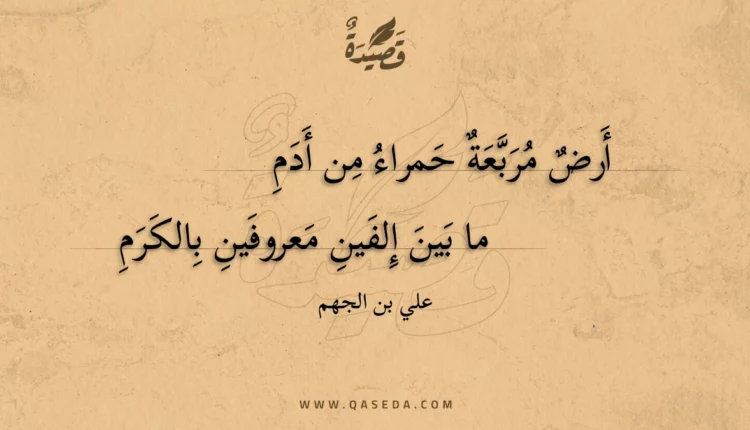 قَصِيدَةٌ
أَرضٌ مُرَبَّعَةٌ حَمراءُ مِن أَدَمِ
ما بَينَ إِلفَينِ مَعروفَينِ بِالكَرَمِ
علي بن الجهم
WWW.QASEDA.COM